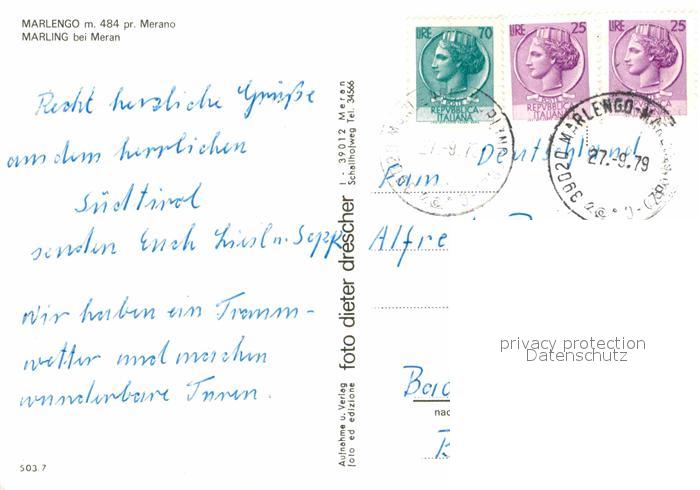 MARLENGO m. 484 pr. Merano
MARLING bei Meran
Recht herzliche Grüße
aus dem herrlichen
Südtirol
senden Euch Liesl u. Sepp
Wir haben ein Traum-
wetter und machen
wunderbare Turen.
503.7
Aufnahme u. Verlag
foto ed edizione
foto dieter drescher
I - 39012 Meran
Schallhofweg Tel. 34566
LIRE 70
REPVBBLICA
ITALIANA
LIRE 25
REPVBBLICA
ITALIANA
LIRE 25
REPVBBLICA
ITALIANA
39020 MARLENGO-MA
27.-9.79
Deutschland
Fam.
Alfre
privacy protection
Datenschutz
Bad
nac